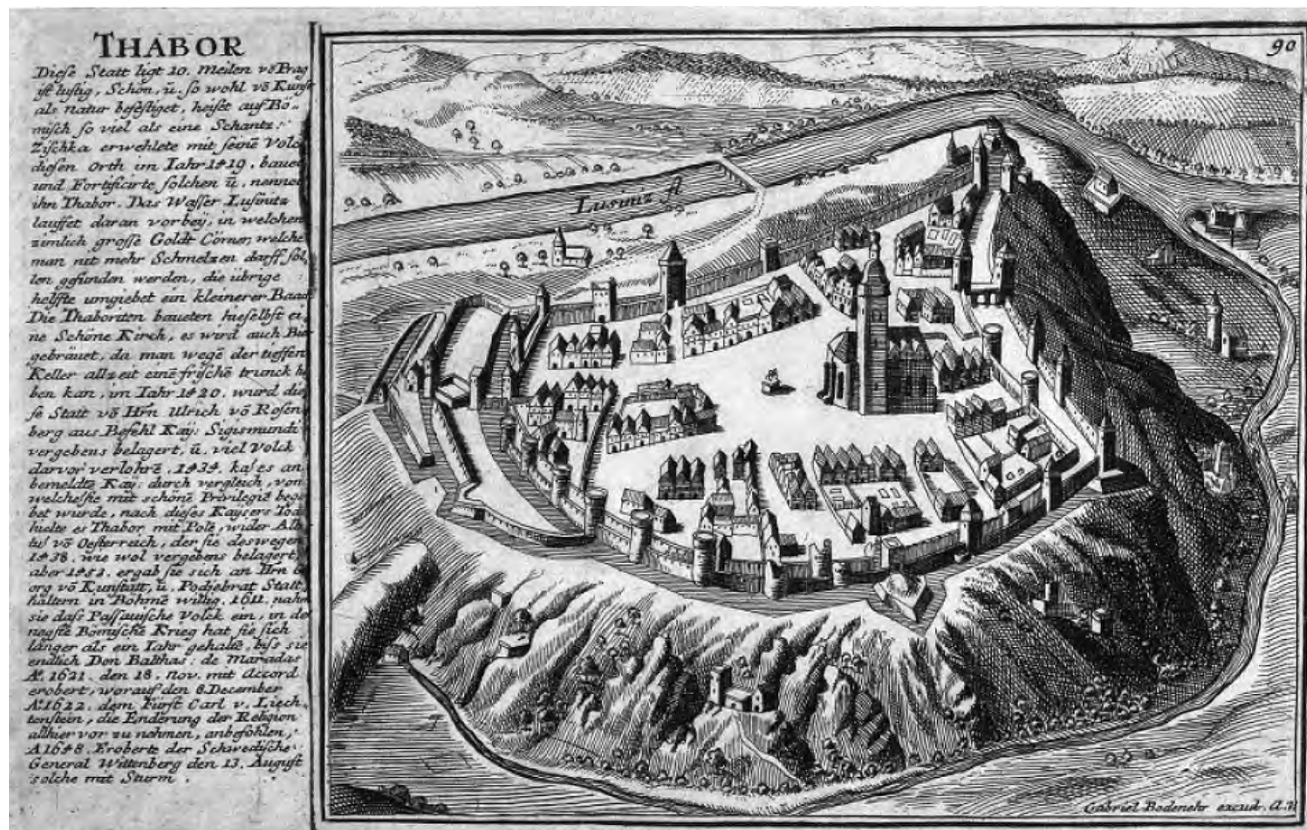 THABOR
Diese Statt ligt 10. Meilen võ Prag
ist lustig, Schön, ü. so wohl võ Kunst
als natur befestiget, heist auf Bö-
misch so viel als eine Schantz.
Zischka erwehlete mit seinē Volck
diesen Orth im Jahr 1419. bauet
und Fortificirte solchen ü. nennet
ihn Thabor. Das Wasser Lusnitz
lauffet daran vorbeÿ, in welchen
zimlich grosse Goldt Cörner, welche
man nit mehr Schmelzen darff sol,
len gefunden werden, die übrige
helffte umgiebet ein kleinerer Baach
Die Thaboriten baueten hieselbst ei,
ne Schöne Kirch, es wird auch Bier
gebräuet, da man wegē der tieffen
Keller allzeit einē frischē trunck ha
ben kan, im Jahr 1420. wurd die
se Statt võ Hrn Ulrich võ Rosen
berg aus Befehl Kaÿ: Sigismundi
vergebens belagert, ü. viel Volck
darvor verlohrē. 1434. kaſ es an
bemeldtē Kaÿ: durch vergleich, von
welchē sie mit schönē Privilegiē bega
bet wurde, nach dieses Kaÿsers Tod
hielte es Thabor mit Polē, wider Alb
võ Oesterreich, der sie deswegen
1438. wie wol vergebens belagert,
aber 1453. ergab sie sich an Hrn
org võ Kunstatt, ü. Podiebrat Statt
haltern in Böhmē willig. 1611. nahm
sie daß Passauische Volck ein, in dē
negstē Bömischē Krieg hat sie sich
länger als ein Jahr gehaltē, biss sie
endlich Don Balthas: de Maradas
Aº. 1621. den 18. Nov. mit Accord
erobert, worauf den 8. December
Aº. 1622. dem Fürst Carl v. Liech,
tenstein, die Enderung der Religion
allhier vor zu nehmen, anbefohlen,
A 1648. Eroberte der Schwedische
General Wittenberg den 13. August
solche mit Sturm.
90
Lusnitz fl
Gabriel Bodenehr excudit. A.V